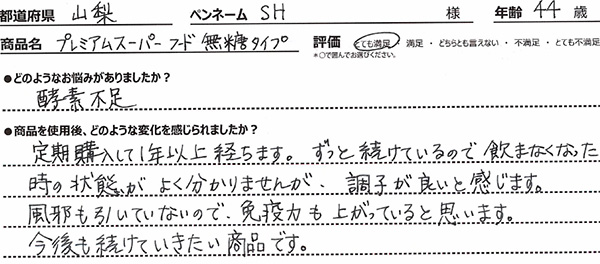 都道府県 山梨 ペンネーム SH 様 年齢 44 歳
商品名 プレミアムスーパーフード無糖タイプ 評価 とても満足・満足・どちらとも言えない・不満足・とても不満足
*○で囲んでお選びください。
●どのようなお悩みがありましたか?
酵素不足
●商品を使用後、どのような変化を感じられましたか?
定期購入して1年以上経ちます。ずっと続けているので飲まなくなった
時の状態がよく分かりませんが、調子が良いと感じます。
風邪も引いていないので、免疫力も上がっていると思います。
今後も続けていきたい商品です。